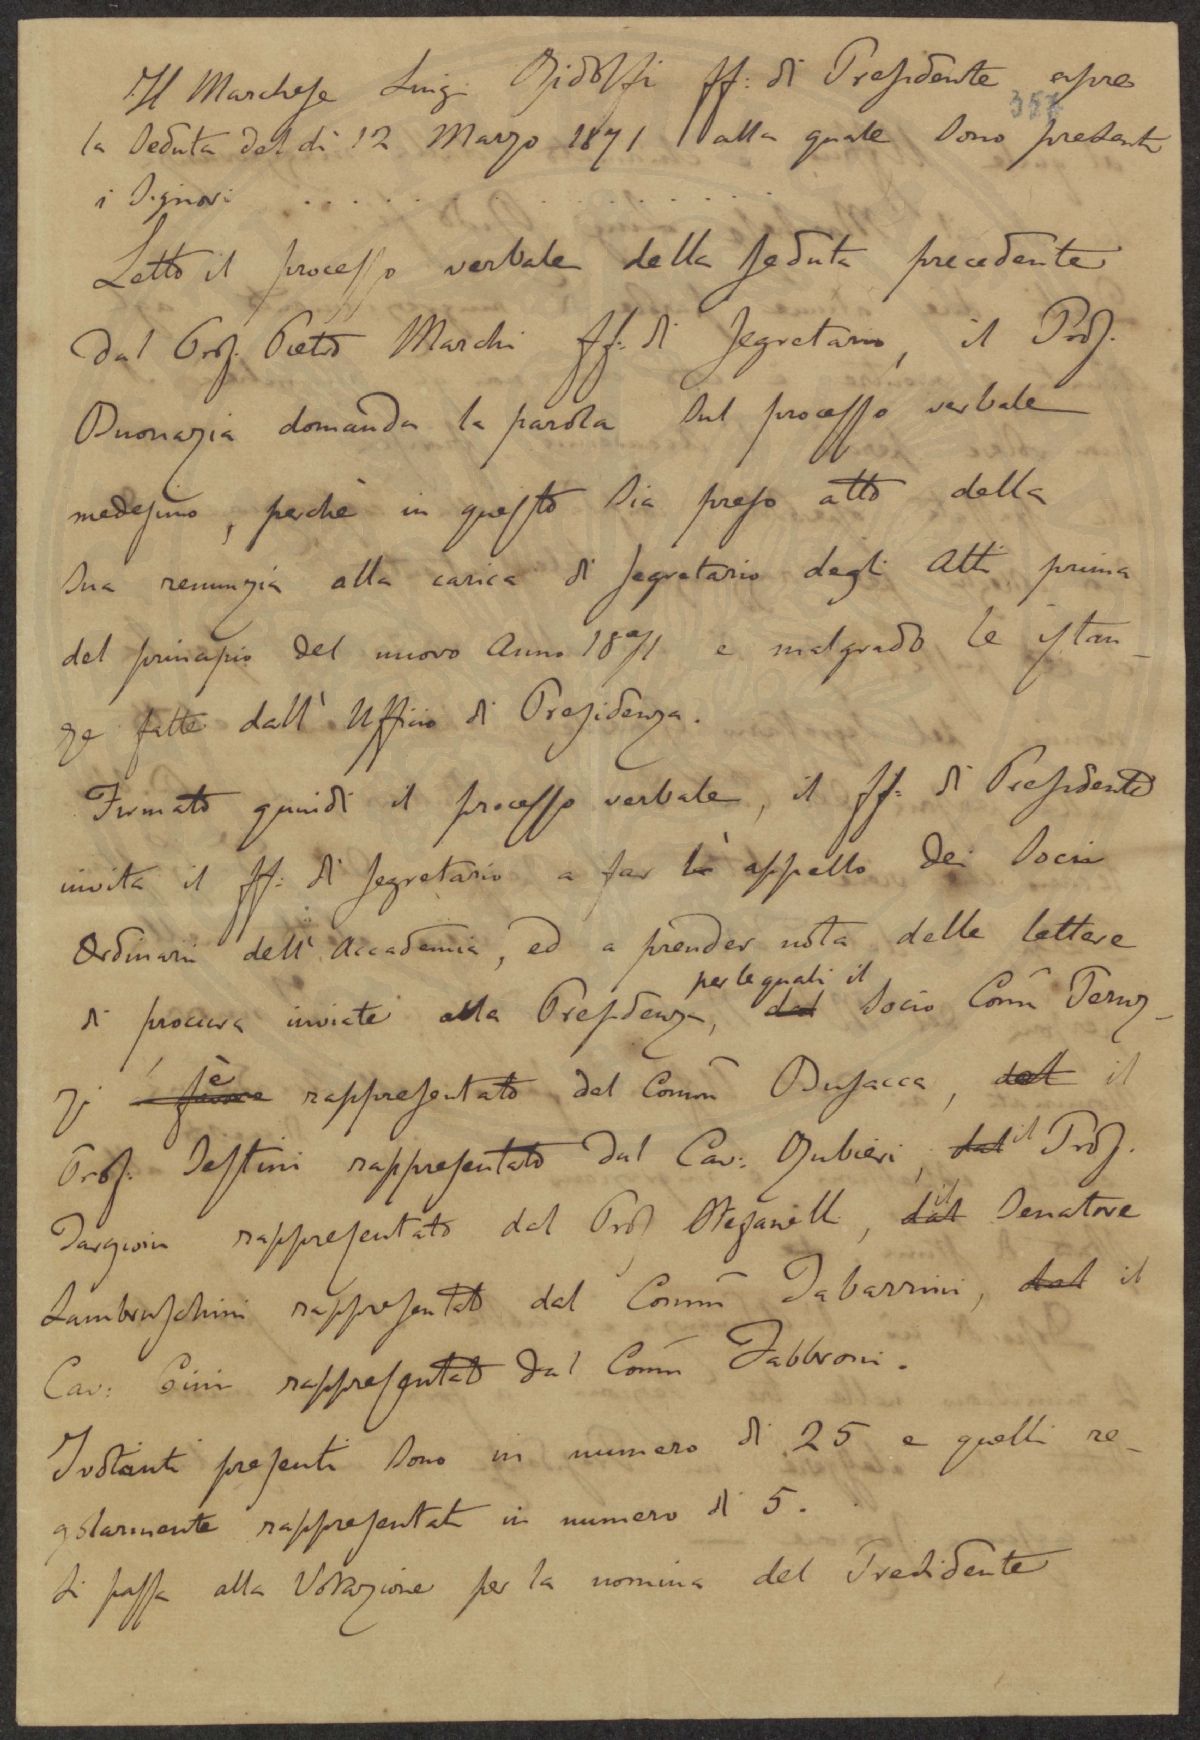 Il Marchese Luigi Ridolfi ff: di Presidente apre
357
la Seduta del dì 12 Marzo 1871 alla quale Sono presenti
i Signori . . . . . . . . . . . . . . .
Letto il processo verbale della Seduta precedente
dal Prof. Pietro Marchi ff: di Segretario, il Prof.
Buonazia domanda la parola sul processo verbale
medesimo, perchè in questo sia preso atto della
Sua renunzia alla carica di Segretario degli Atti prima
del principio del nuovo Anno 1871 e malgrado le istan-
ze fatte dall' Ufficio di Presidenza.
Firmato quindi il processo verbale, il ff: di Presidente
invita il ff: di Segretario a far lo appello dei Socii
Ordinarii dell' Accademia, ed a prender nota delle lettere
per le quali il
di procura inviate alla Presidenza, dal Socio Comm
è
rappresentato del Comm Busacca, dal il
Prof. Testini rappresentato dal Cav: Rubieri, dal il Prof.
Targioni rappresentato dal Prof Stefanelli, dal il Senatore
Lambruschini rappresentato dal Comm Tabarrini, dal il
Cav: rappresentato dal Comm Fabbroni.
I votanti presenti Sono in numero di 25 e quelli re-
golarmente rappresentati in numero di 5.
Si passa alla Votazione per la nomina del Presidente